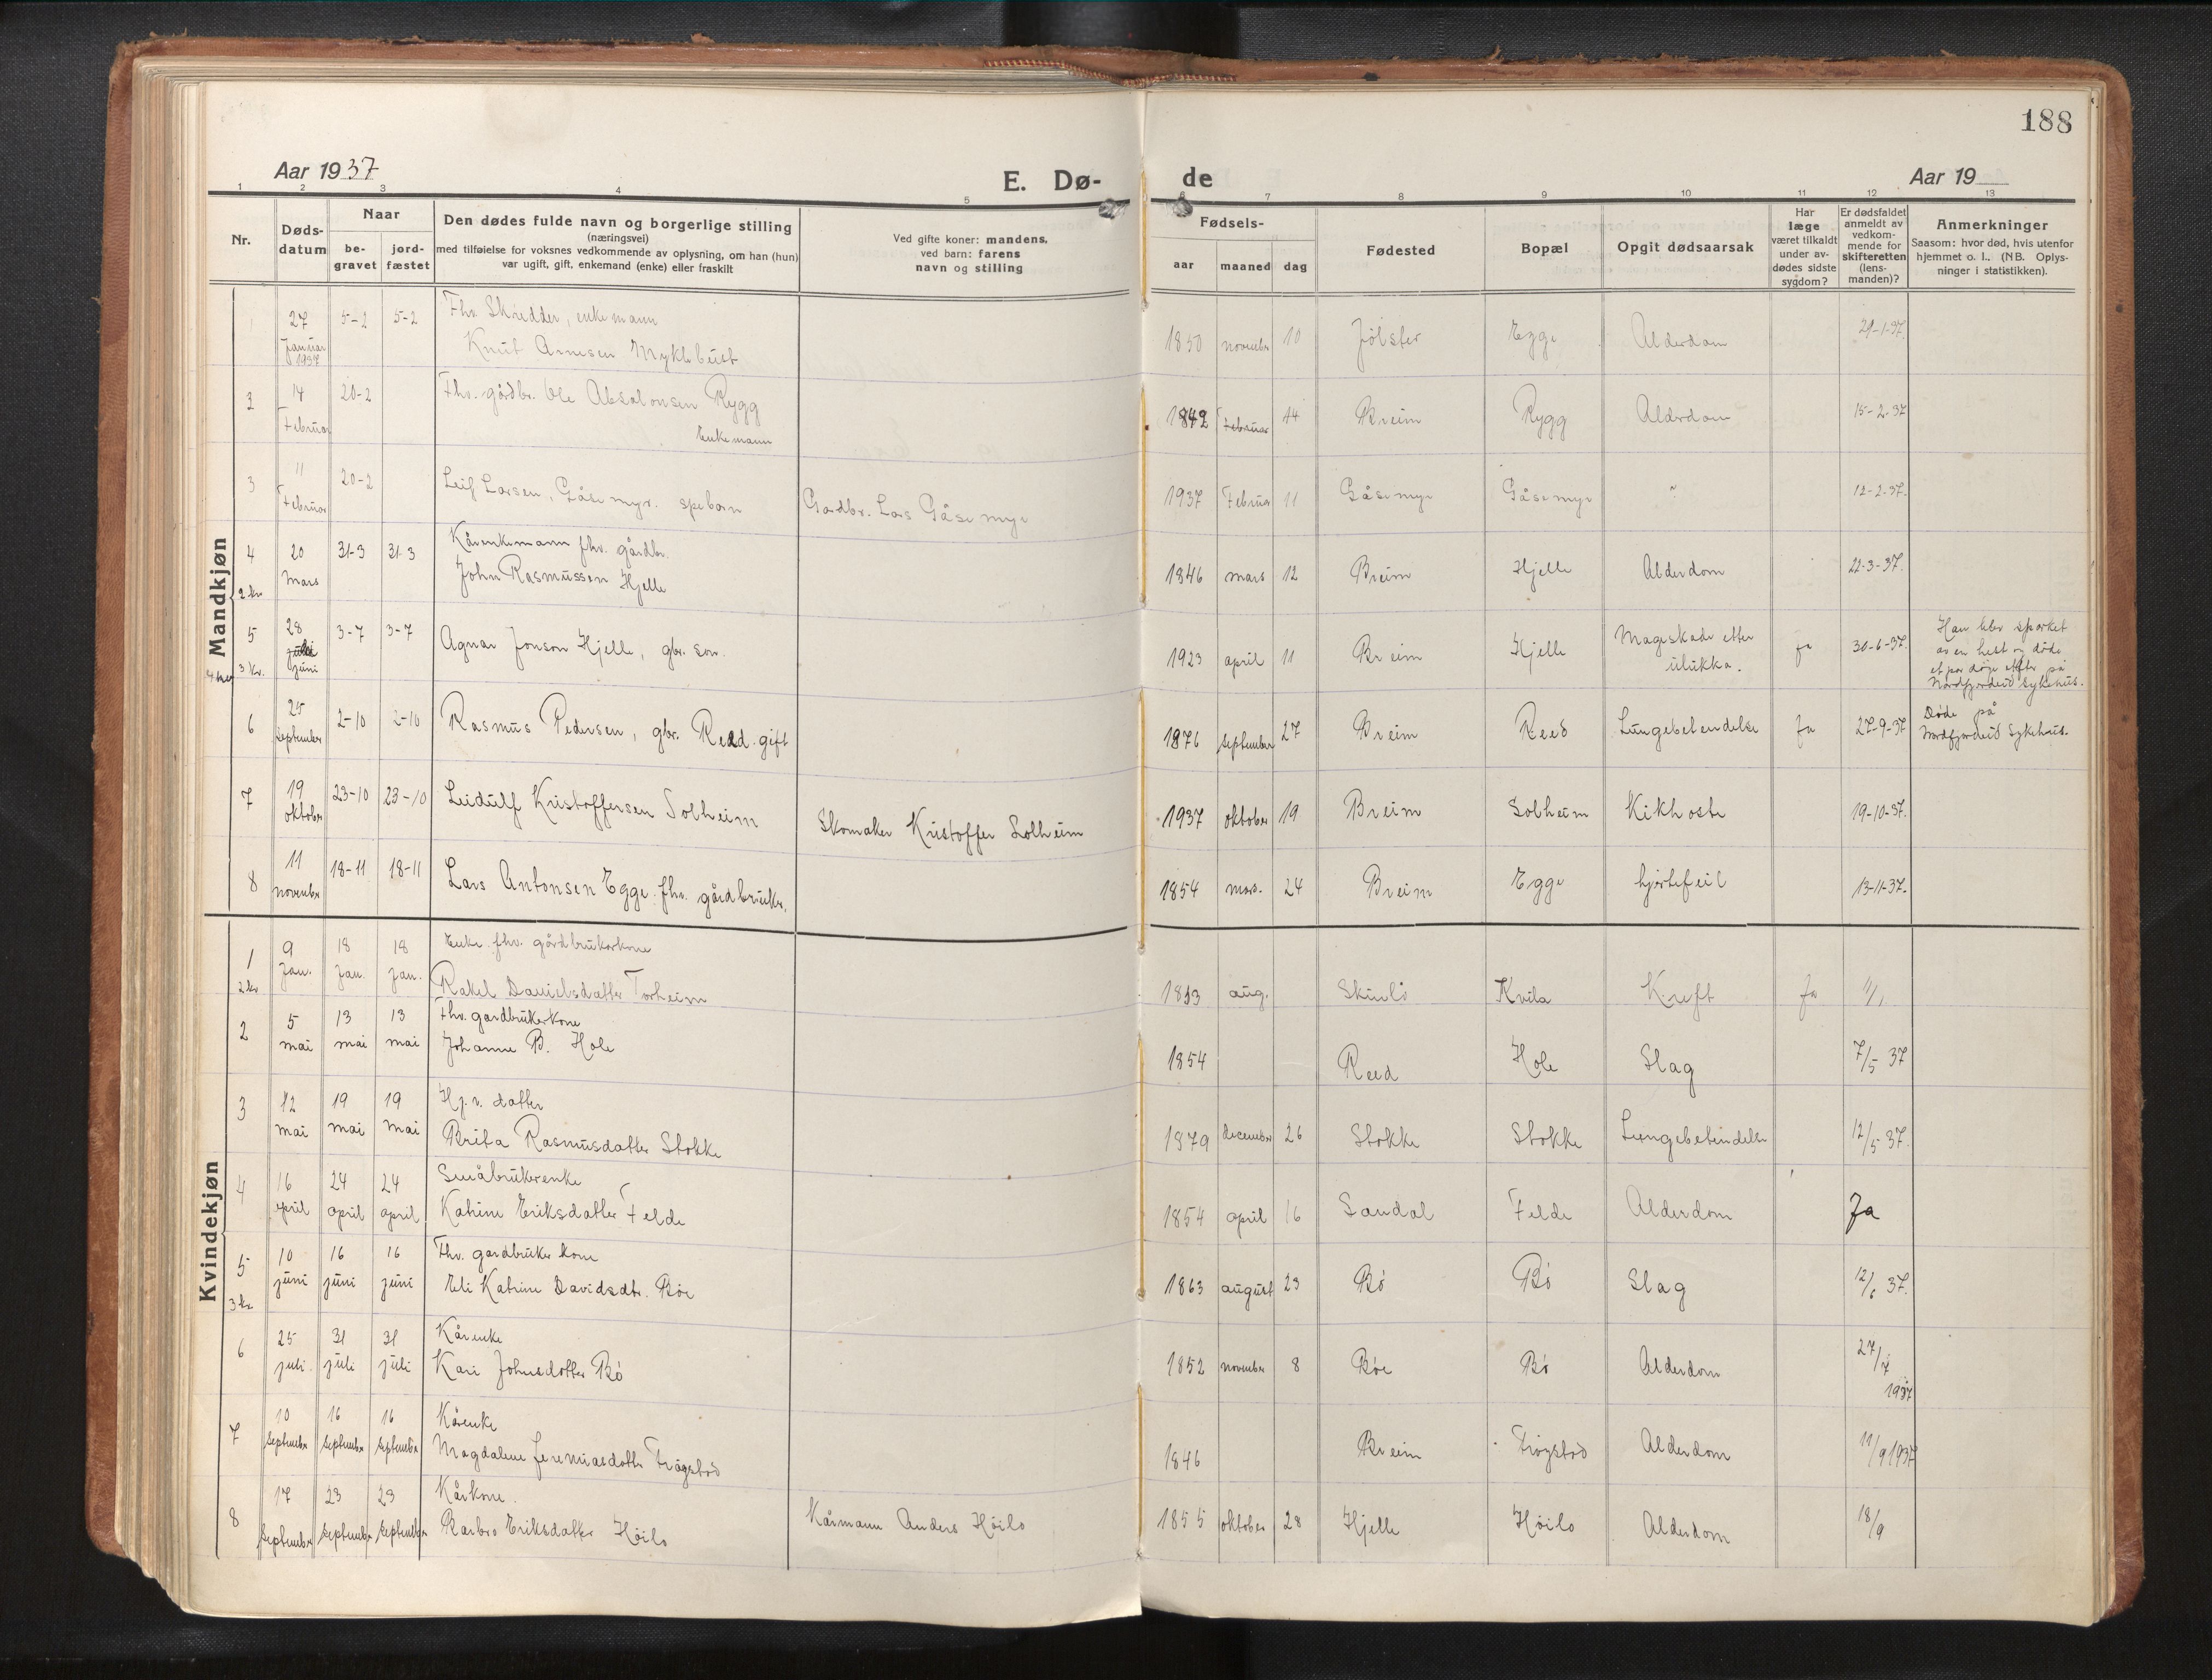 188
Aar 1937
E. Dø-
de
Aar 19
1 2 3 4 5 6 7 8 9 10 11 12 13
Nr.
Døds-
datum
Naar
be-
gravet
jord-
fæstet
Den dødes fulde navn og borgerlige stilling
(næringsvei)
med tilføielse for voksnes vedkommende av oplysning, om han (hun)
var ugift, gift, enkemand (enke) eller fraskilt
Ved gifte koner: mandens,
ved barn: farens
navn og stilling
Fødsels-
aar maaned dag
Fødested
Bopæl
Opgit dødsaarsak
Har
læge
været tilkaldt
under av-
dødes sidste
sygdom?
Er dødsfaldet
anmeldt av
vedkom-
mende for
skifteretten
(lens-
manden)?
Anmerkninger
Saasom: hvor død, hvis utenfor
hjemmet o. l.. (NB. Oplys-
ninger i statistikken).
Mandkjøn
1 27 januar 1937 5-2 5-2 Fhv. Skredder, enkemann
Knut Arnesen Myklebust 1850 november 10 Jølster Egge Alderdom 29-1-37.
2 14 Februar 20-2 Fhv. gårdbr. Ole Absalonsen Rygg
Enkemann 1842 Februar 14 Breim Rygg Alderdom 15-2-37
3 11 Februar 20-2 Leif Larsen, Gåsemyr. spebarn Gardbr. Lars Gåsemyr 1937 Februar 11 Gåsemyr Gåsemyr ? 12-2-37.
4 20 Mars 31-3 31-3 Kårenkemann fhv. gårdbr.
2 kr John Rasmussen Hjelle 1846 mars 12 Breim Hjelle Alderdom 22-3-37.
5 28 juni 3-7 3-7 Agnar Jonson Hjelle, gbr. son. 1923 april 11 Breim Hjelle Mageskade etter
ulukka. ja 30-6-37. Han blev sparket
av en hest og døde
et par døgn etter på
Nordfjordeid Sykehus.
3 kr.
6 25 september 2-10 2-10 Rasmus Pedersen, gbr. Reed. gift 1876 september 27 Breim Reed Lungebetendelse Ja 27-9-37 Døde på
Nordfjordeid Sykehus.
7 19 oktober 23-10 23-10 Leidulf Kristoffersen Solheim Skomaker Kristoffer Solheim 1937 oktober 19 Breim Solheim Kikhoste 19-10-37.
8 11 november 18-11 18-11 Lars Antonsen Egge. fhv. gårdbruker. 1854 mars. 24 Breim Egge hjertefeil 13-11-37.
Kvindekjøn
1 9 Jan. 18 Jan. 18 Jan. Enke. fhv. gårdbrukerkone
2 kr Rakel Danielsdatter Torheim aug. Skinlo Kvila Kreft Ja 11/1
2 5 mai 13 mai 13 mai Fhv. gardbrukerkone
Johanne B. Hole 1854 Reed Hole Slag 7/5 37
3 12 mai 19 mai 19 mai Hj.v. datter
Brita Rasmusdatter Stokke 1879 december 26 Stokke Stokke Lungebetendelse 12/5 37.
4 16 april 24 april 24 april Småbrukerenke
Katrine Eriksdatter Felde 1854 april 16 Sandal Felde Alderdom Ja
5 10 juni 16 juni 16 juni Fhv. gardbruker kone
3 kr Eli Katrine Davidsdtr. Bøe 1863 august 23 Bø Bø Slag 12/6 37.
6 25 juli. 31 juli 31 juli Kårenke
Kari Johnsdotter Bø 1852 november 8 Bøe Bø Alderdom 27/7 1937
7 10 September 16 September 16 September Kårenke
Magdalene Jeremiasdotter Frøgstod 1846 Breim Frøgstod Alderdom 11/9 1937
8 17 September 23 September 23 September Kårkone.
Barbro Eriksdatter Høilo Kårmann Anders Høilo 1855 oktober 28 Hjelle Høilo Alderdom 18/9